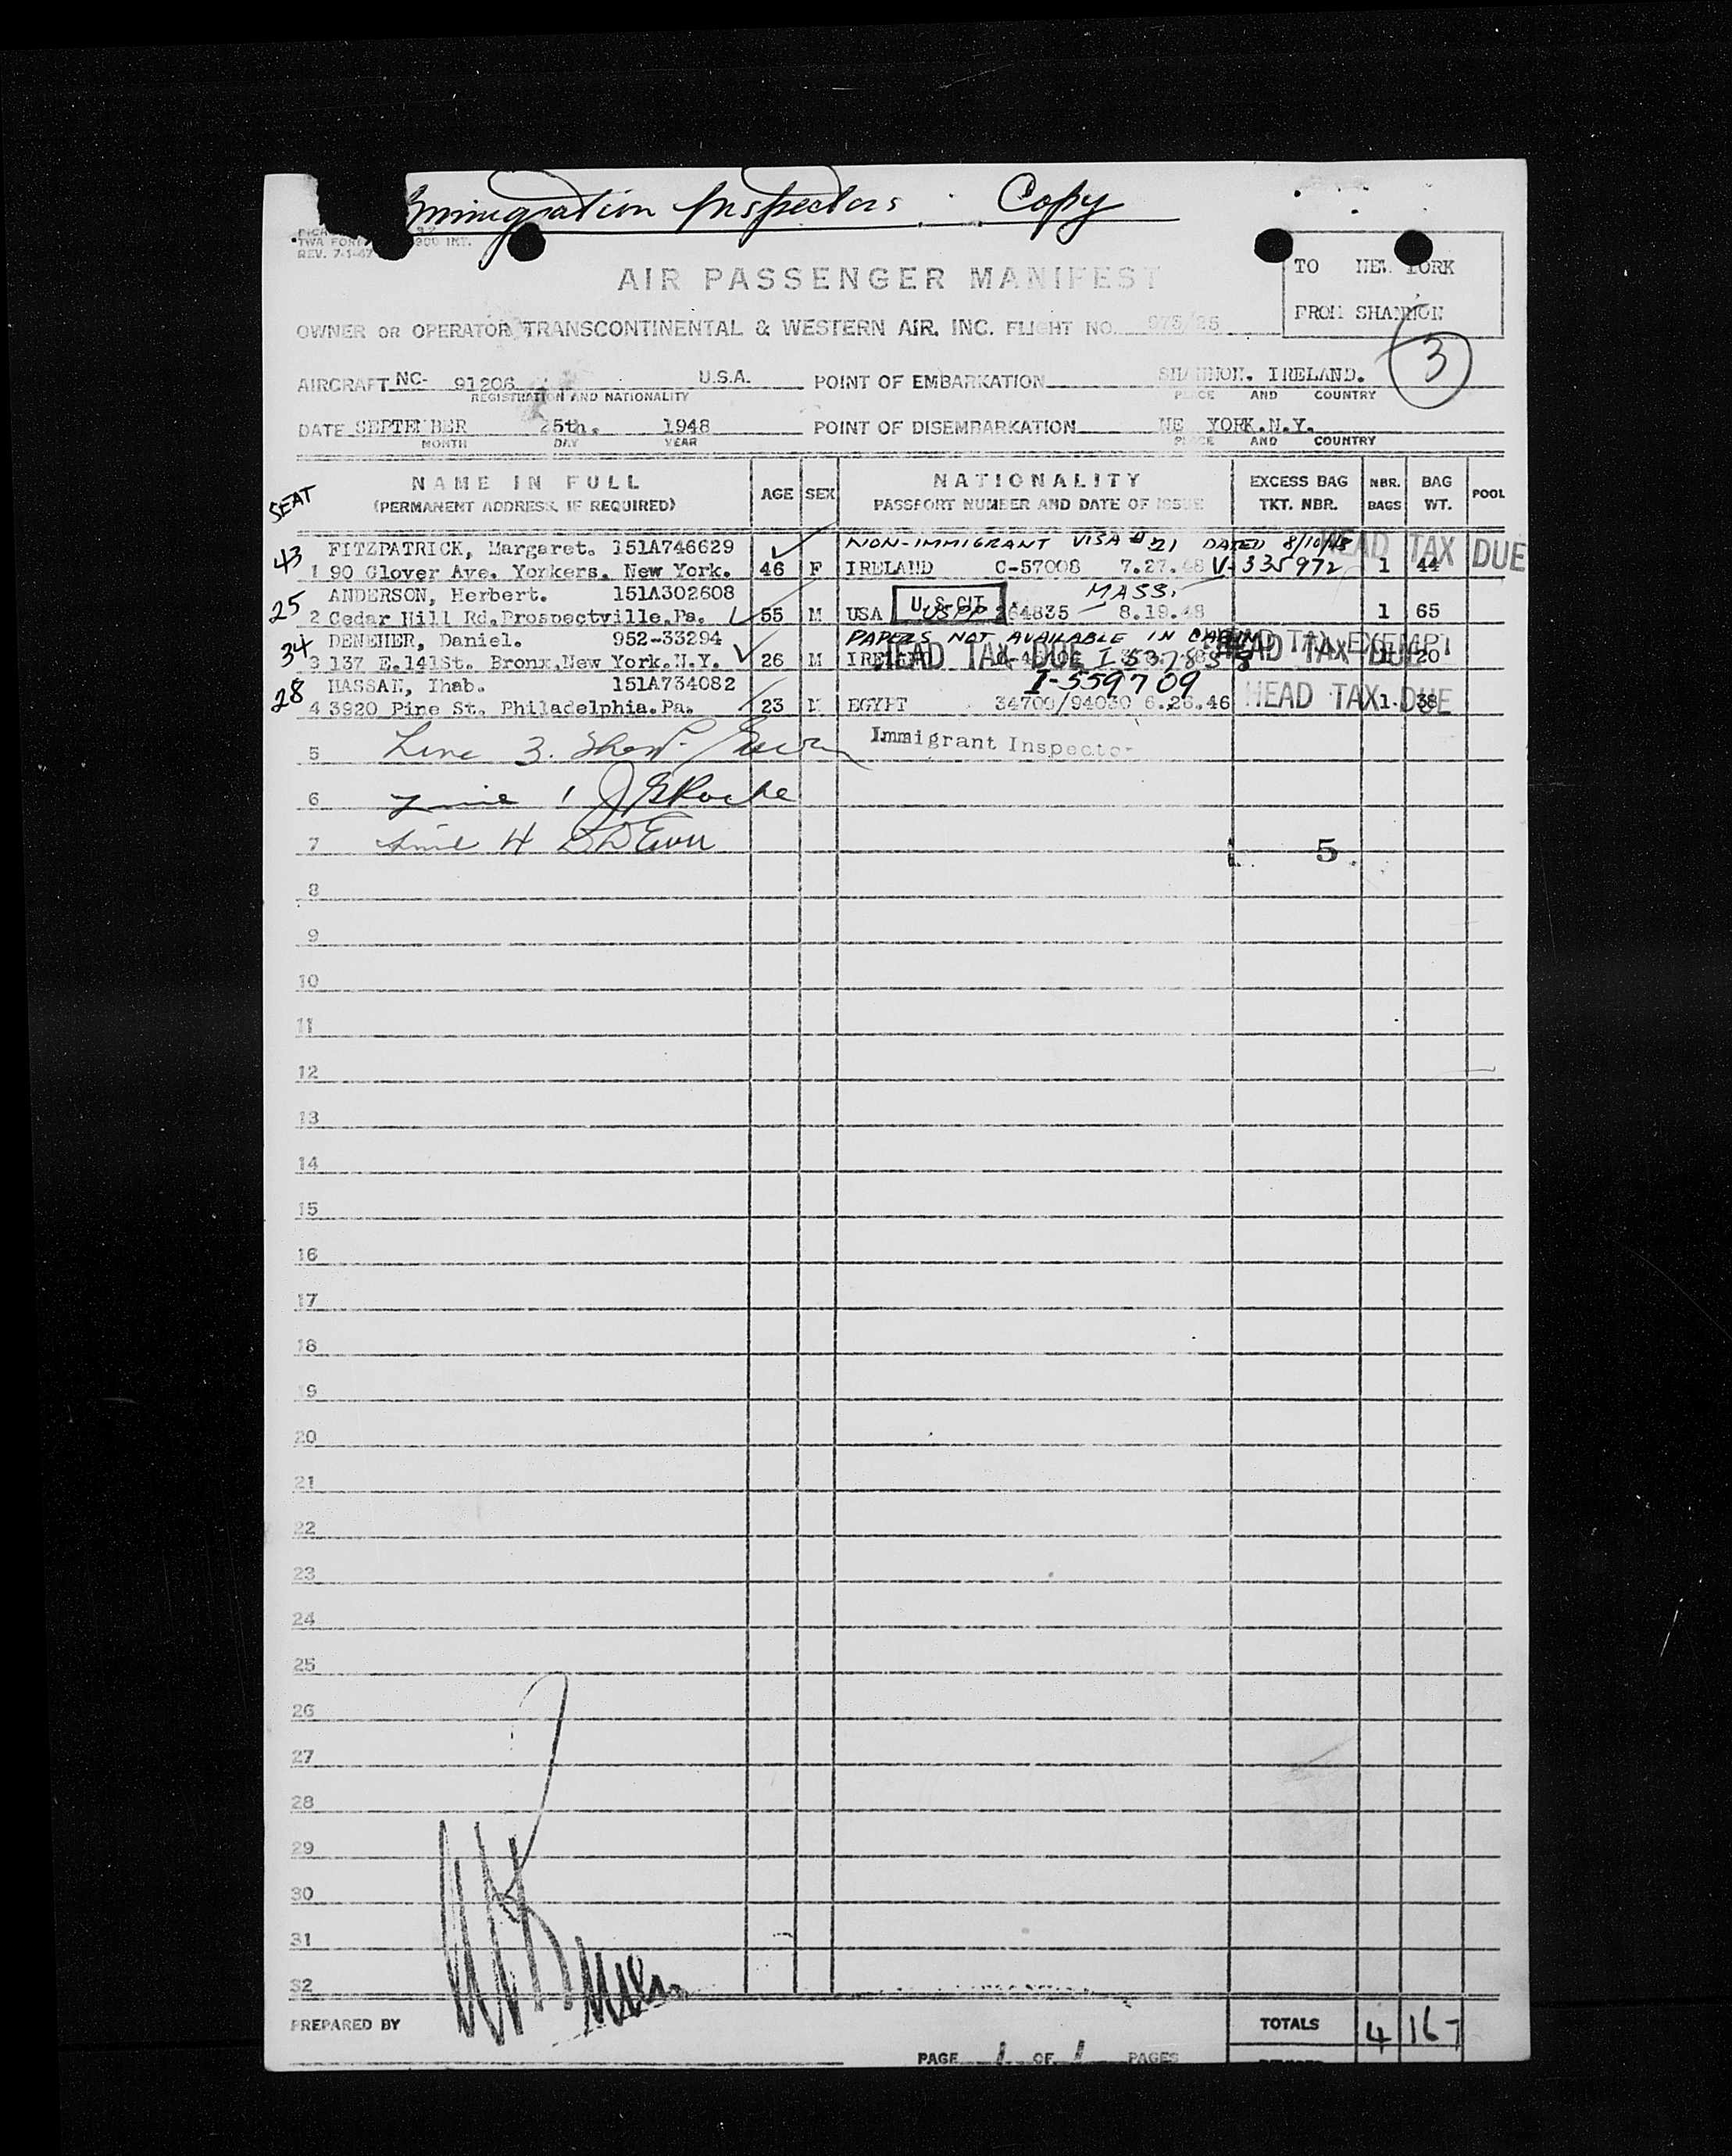 Immigration Inspectors Copy
TWA FORM 900 INT.
REV. 7-1-47
AIR PASSENGER MANIFEST
TO NEW YORK
FROM SHANNON
3
OWNER OR OPERATOR TRANSCONTINENTAL & WESTERN AIR, INC. FLIGHT NO.
AIRCRAFT NC- 91206 U.S.A. POINT OF EMBARKATION SHANNON, IRELAND.
REGISTRATION AND NATIONALITY PLACE AND COUNTRY
DATE SEPTEMBER 25th. 1948 POINT OF DISEMBARKATION NE YORK.N.Y.
MONTH DAY YEAR PLACE AND COUNTRY
SEAT
NAME IN FULL AGE SEX NATIONALITY EXCESS BAG NBR. BAG POOL
(PERMANENT ADDRESS, IF REQUIRED) PASSPORT NUMBER AND DATE OF ISSUE TKT. NBR. BAGS WT.
43 FITZPATRICK, Margaret. 151A746629 NON-IMMIGRANT VISA # 21 DATED 8/10/48 HEAD TAX DUE
1 90 Glover Ave. Yorkers. New York. 46 F IRELAND C-57008 7.27.48 V-335972 1 44
25 ANDERSON, Herbert. 151A302608 U.S. CIT MASS.
2 Cedar Hill Rd.Prospectville.Pa. 55 M USA USPP 264835 8.19.48 1 65
34 DENEHER, Daniel. 952-33294 PAPERS NOT AVAILABLE IN CABIN HEAD TAX EXEMPT
3 137 E.141St. Bronx.New York.N.Y. 26 M IRELAND HEAD TAX DUE I 537858 HEAD TAX DUE 1 20
28 HASSAN, Ihab. 151A734082 I-559709
4 3920 Pine St. Philadelphia.Pa. 23 M EGYPT 34700/94030 6.26.46 HEAD TAX DUE 1. 38
5 Line 3. Immigrant Inspector
6 Line 1 J G Roche
7 Line 4
5
8
9
10
11
12
13
14
15
16
17
18
19
20
21
22
23
24
25
26
27
28
29
30
31
32
PREPARED BY TOTALS 4 167
PAGE 1 OF 1 PAGES